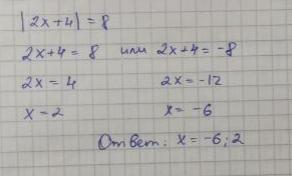 |2x+4|=8
2x+4=8 или 2x+4=-8
2x=4 2x=-12
x=2 x=-6
Ответ: x=-6;2